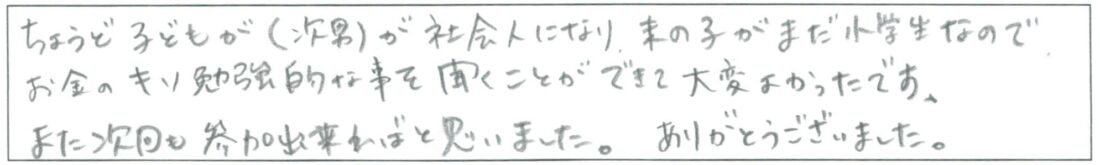 ちょうど子どもが(次男)が社会人になり、末の子がまだ小学生なので
お金のキソ勉強的な事を聞くことができて大変よかったです、
また次回も参加出来ればと思いました。 ありがとうございました。